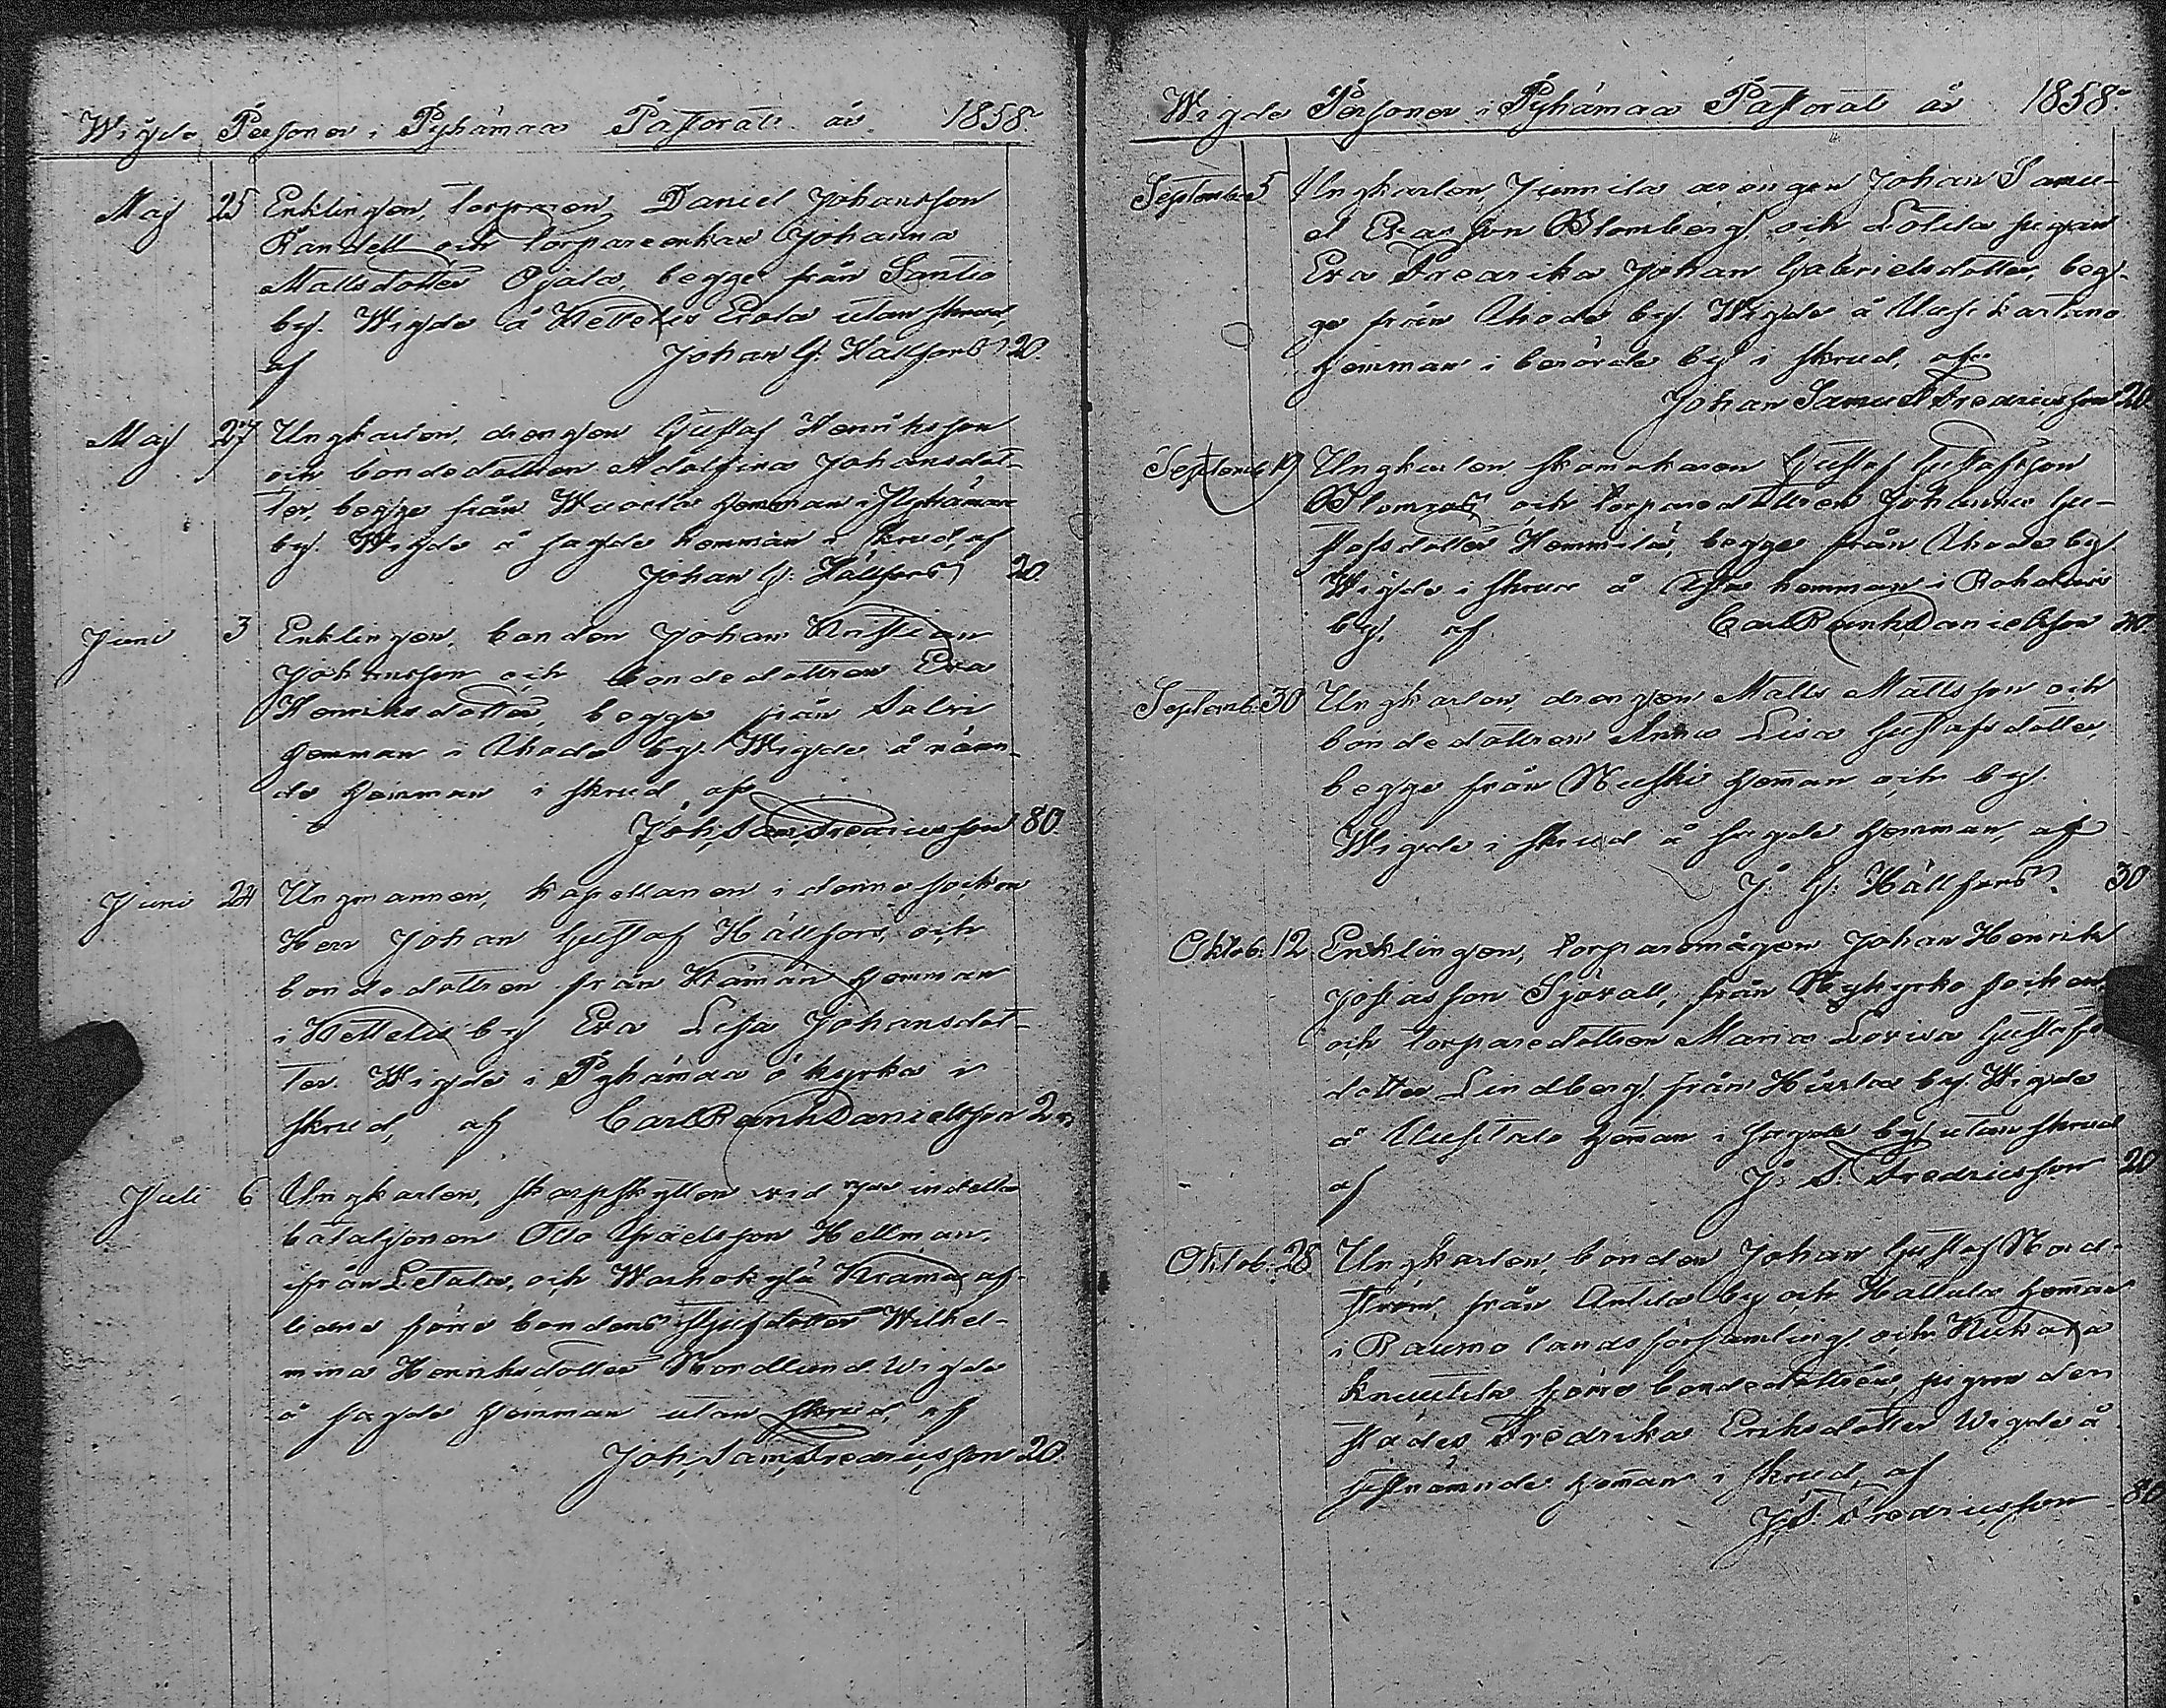 Wigde Personer i Pyhämaa Pastorat år 1858.
Maj 25 Enklingen, torparen Daniel Johansson
Randell och torpareenkan Johanna
Mattsdotter Ojala, begge från Santio
by. Wigde å Vettelis Erola utan skrud,
af Johan G. Hällfors 20.
Maj 27 Ungkarlen, drengen Gustaf Henriksson
och bondedottren Adolfina Johansdot-
ter, begge från Wuorla hemman i Pyhämaa
by. Wigde å sagde hemman i skrud, af
Johan G. Hällfors 20.
Juni 3 Enklingen, bonden Johan Kristian
Johansson och bondedottren Eva
Henriksdotter, begge från Salvi
hemman i Ihode by. Wigde å nämn-
de hemman i skrud af
Joh. Sam. Fredricsson 80.
Juni 24 Ungmannen, kapellanen i denna socken
Herr Johan Gustaf Hällfors, och
bondedottren från Kämäri hemman
i Vettelis by Eva Lisa Johansdot-
ter. Wigde i Pyhämaa ö kyrka i
skrud, af Carl R Danielsson
Juli 6 Ungkarlen, skarpskytten vid indelta
bataljonen Otto Israelsson Hellman,
ifrån Letala, och Warhokylä Krama af-
lidne förre bondens styfdotter Wilhel-
mina Henriksdotter Nordlund. Wigde
å sagde hemman utan skrud, af
Joh. Sam. Fredricsson 20.
Wigde Personer i Pyhämaa Pastorat år 1858.
September 5 Ungkarlen, Junnila drengen Johan Samu-
el Blomberg och Lötila pigan
Eva Fredrika Johan Gabrielsdotter, beg-
ge från Ihode by. Wigde å Uusikartano
hemman i berörde by i skrud, af
Johan Samuel Fredricsson 20.
Septemb. 19 Ungkarlen skomakaren Gustaf Gustafsson
Blomroos och torparedottren Johanna Gu-
stafsdotter Hemmilä, begge från Ihode by
Wigde i skrud å hemman i Rohdais
by, af Carl R Danielsson
Septemb. 30 Ungkarlen, drengen Matts Mattsson och
bondedottren Anna Lisa Gustafsdotter,
begge från Nuhki heman och by.
Wigde i skrud å sagde hemman, af
J. G. Hällfors. 30
Oktob. 12. Enklingen, torparemågen Johan Henrik
Josiasson Sjövall, från Nykyrko socken,
och torparedottren Maria Lovisa Gustafs
dotter Lindberg, från Hirslax by. Wigde
å Uusitalo heman i sagde by utan skrud
af J. S. Fredricsson 20
Oktob. 28 Ungkarlen, bonden Johan Gustaf Nord-
ström från Antila by och Hallula heman
i Raumo landsförsamling och Kukola
Knuutila förre bondedottren, pigan der-
städes Fredrika Eriksdotter Wigde å
sistnämnde heman i skrud, af
J. S. Fredricsson 80